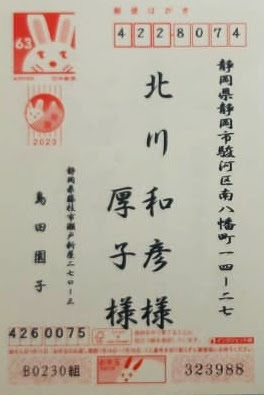 郵便はがき
63
4228074
静岡県静岡市駿河区南八幡町一四ー二七
北川和彦様
厚子様
2023
静岡県藤枝市瀬戸新屋二七〇ー三
島田園子
4260075
B0230組
323988